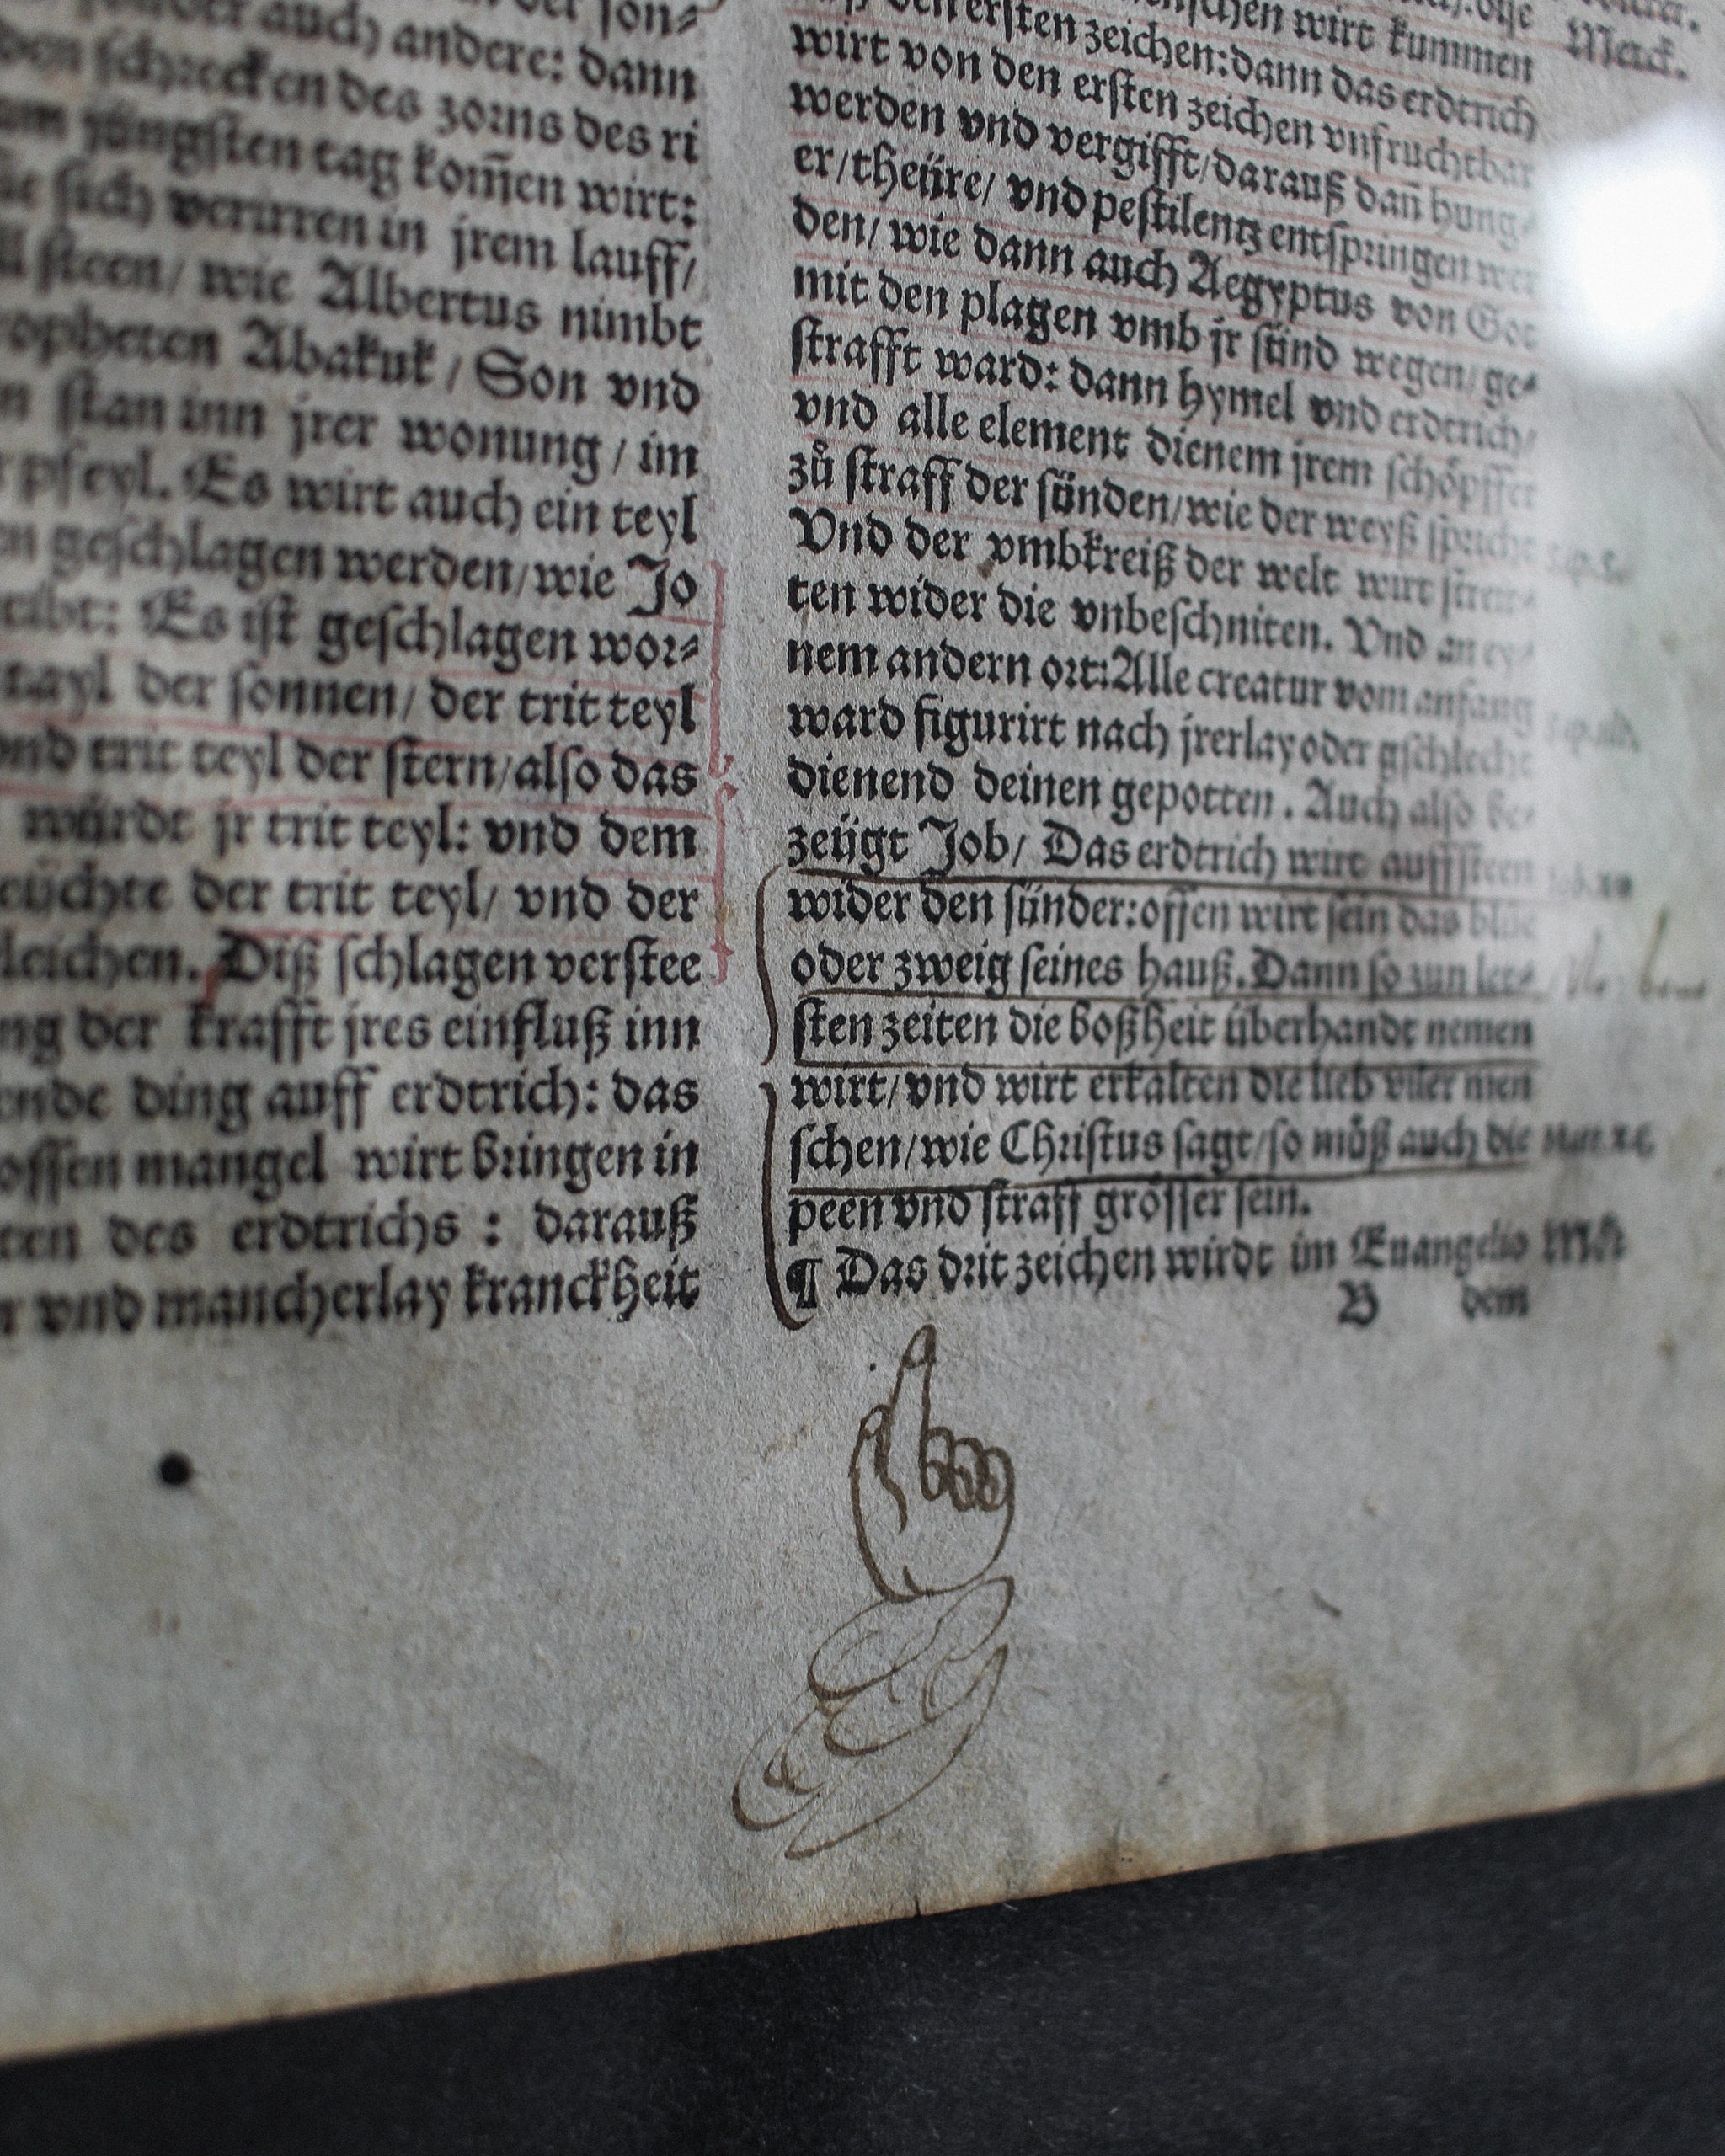 der son⸗
auch andere: dann
schrecken des zorns des ri
jüngsten tag kom̄en wirt:
sich verirren in jrem lauff/
steen/ wie Albertus nimbt
Abakuk/ Son vnd
stan inn jrer wonung/ im
pfeyl. Es wirt auch ein teyl
geschlagen werden/wie Jo
Es ist geschlagen wor⸗
tayl der sonnen/ der trit teyl
vnd trit teyl der stern/also das
würdt jr trit teyl: vnd dem
der trit teyl/ vnd der
Diß schlagen verstee
der krafft jres einfluß inn
ding auff erdtrich: das
mangel wirt bringen in
des erdtrichs: darauß
vnd mancherlay kranckheit
wirt kummen
den ersten zeichen:dann das erdtrich
wirt von den ersten zeichen vnfruchtbar
werden vnd vergifft/darauß dañ hung⸗
er/theüre/ vnd pestilentz entspringen wer
den/ wie dann auch Aegyptus von Got
mit den plagen vmb jr sünd wegen/ge⸗
strafft ward: dann hymel vnd erdtrich/
vnd alle element dienem jrem schöpffer
zů straff der sünden/wie der weyß spricht
Vnd der vmbkreiß der welt wirt streit⸗
ten wider die vnbeschniten. Vnd an ey⸗
nem andern ort:Alle creatur vom anfang
ward figurirt nach jrerlay oder gschlecht
dienend deinen gepotten. Auch also be⸗
zeügt Job/ Das erdtrich wirt auffsteen
wider den sünder:offen wirt sein das blüe
oder zweig seines hauß.Dann so zun letz⸗
sten zeiten die boßheit überhandt nemen
wirt/vnd wirt erkalten die lieb viler men
schen/wie Christus sagt/so můß auch die
peen vnd straff grösser sein.
¶ Das drit zeichen wirdt im Euangelio
B dem
Merck.